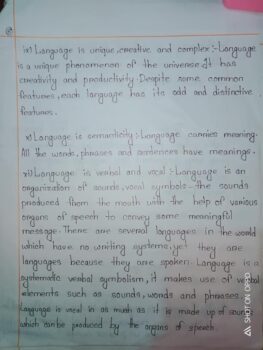 ix) Language is unique, creative and complex :- Language
is a unique phenomenon of the universe. It has
creativity and productivity. Despite some common
features, each language has its odd and distinctive
features.
x) Language is semanticity :- Language carries meaning.
All the words, phrases and sentences have meanings.
xi) Language is verbal and vocal :- Language is an
organization of sounds, vocal symbols - the sounds
produced from the mouth with the help of various
organs of speech to convey some meaningful
message. There are several languages in the world
which have no writing systems, yet they are
languages because they are spoken. Language is a
systematic verbal symbolism, it makes use of verbal
elements such as sounds, words and phrases.
Language is vocal in as much as it is made up of sounds
which can be produced by the organs of speech.
SHOT ON OPPO